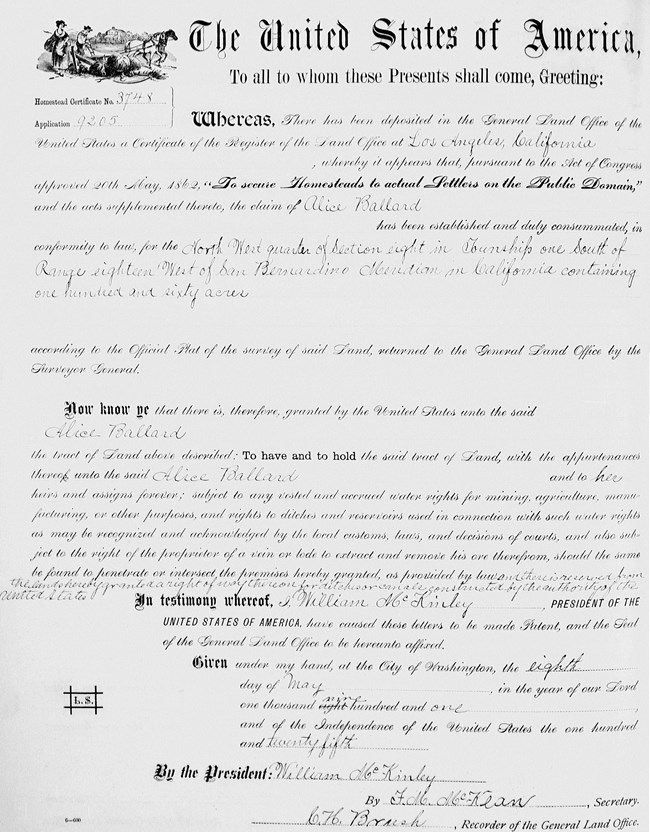 The United States of America,
To all to whom these Presents shall come, Greeting:
Homestead Certificate No. 3748
Application 9205
Whereas, There has been deposited in the General Land Office of the
United States a Certificate of the Register of the Land Office at Los Angeles, California
, whereby it appears that, pursuant to the Act of Congress
approved 20th May, 1862, "To secure Homesteads to actual Settlers on the Public Domain,"
and the acts supplemental thereto, the claim of Alice Ballard
has been established and duly consummated, in
conformity to law, for the North West quarter of Section eight in Township one South of
Range eighteen West of San Bernardino Meridian in California containing
one hundred and sixty acres
according to the Official Plat of the survey of said Land, returned to the General Land Office by the
Surveyor General.
Now know ye that there is, therefore, granted by the United States unto the said
Alice Ballard
the tract of Land above described: To have and to hold the said tract of Land, with the appurtenances
thereof, unto the said Alice Ballard and to her
heirs and assigns forever; subject to any vested and accrued water rights for mining, agriculture, manu-
facturing, or other purposes, and rights to ditches and reservoirs used in connection with such water rights
as may be recognized and acknowledged by the local customs, laws, and decisions of courts, and also sub-
ject to the right of the proprietor of a vein or lode to extract and remove his ore therefrom, should the same
be found to penetrate or intersect the premises hereby granted, as provided by law and there is reserved from
the lands hereby granted a right of way thereon for ditches or canals constructed by the authority of the
United States
In testimony whereof, I, William McKinley, PRESIDENT OF THE
UNITED STATES OF AMERICA, have caused these letters to be made Patent, and the Seal
of the General Land Office to be hereunto affixed.
Given under my hand, at the City of Washington, the eighth
day of May, in the year of our Lord
one thousand eight nine hundred and one,
and of the Independence of the United States the one hundred
and twenty fifth
L.S.
By the President: William McKinley
By F. M. McKean, Secretary.
C. H. Brush, Recorder of the General Land Office.